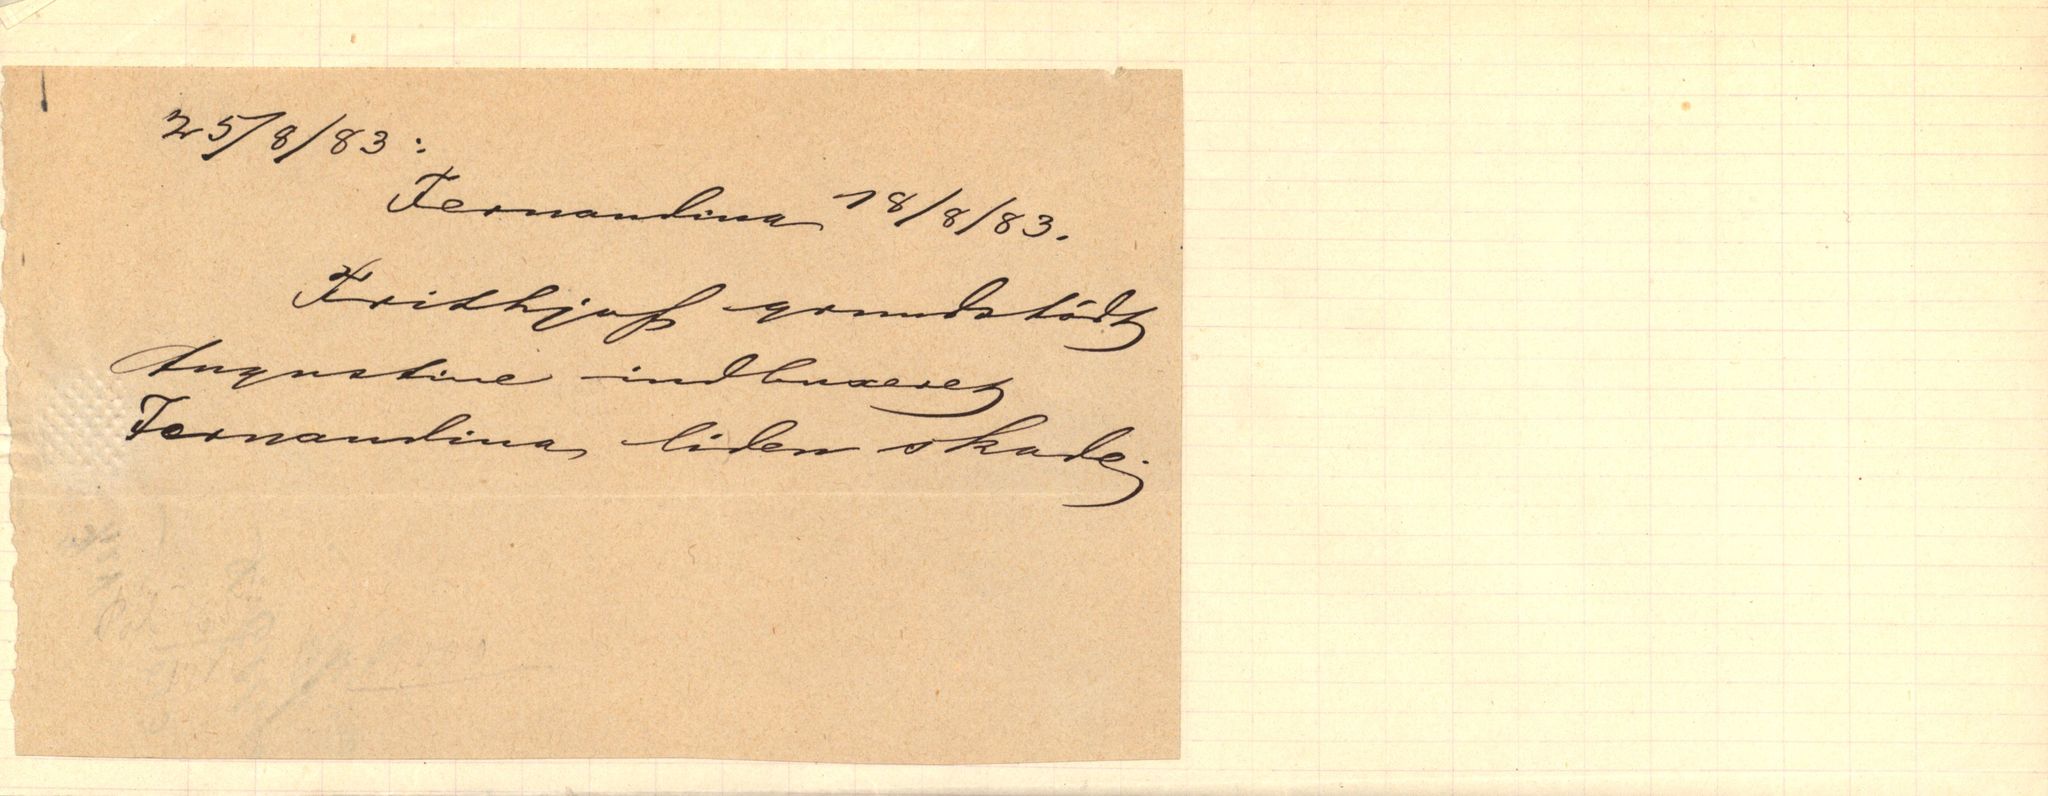 25/8/83:
Fernandina 18/8/83.
Frithjof grundstödt
Augustine indbuxeret
Fernandina liden skade.